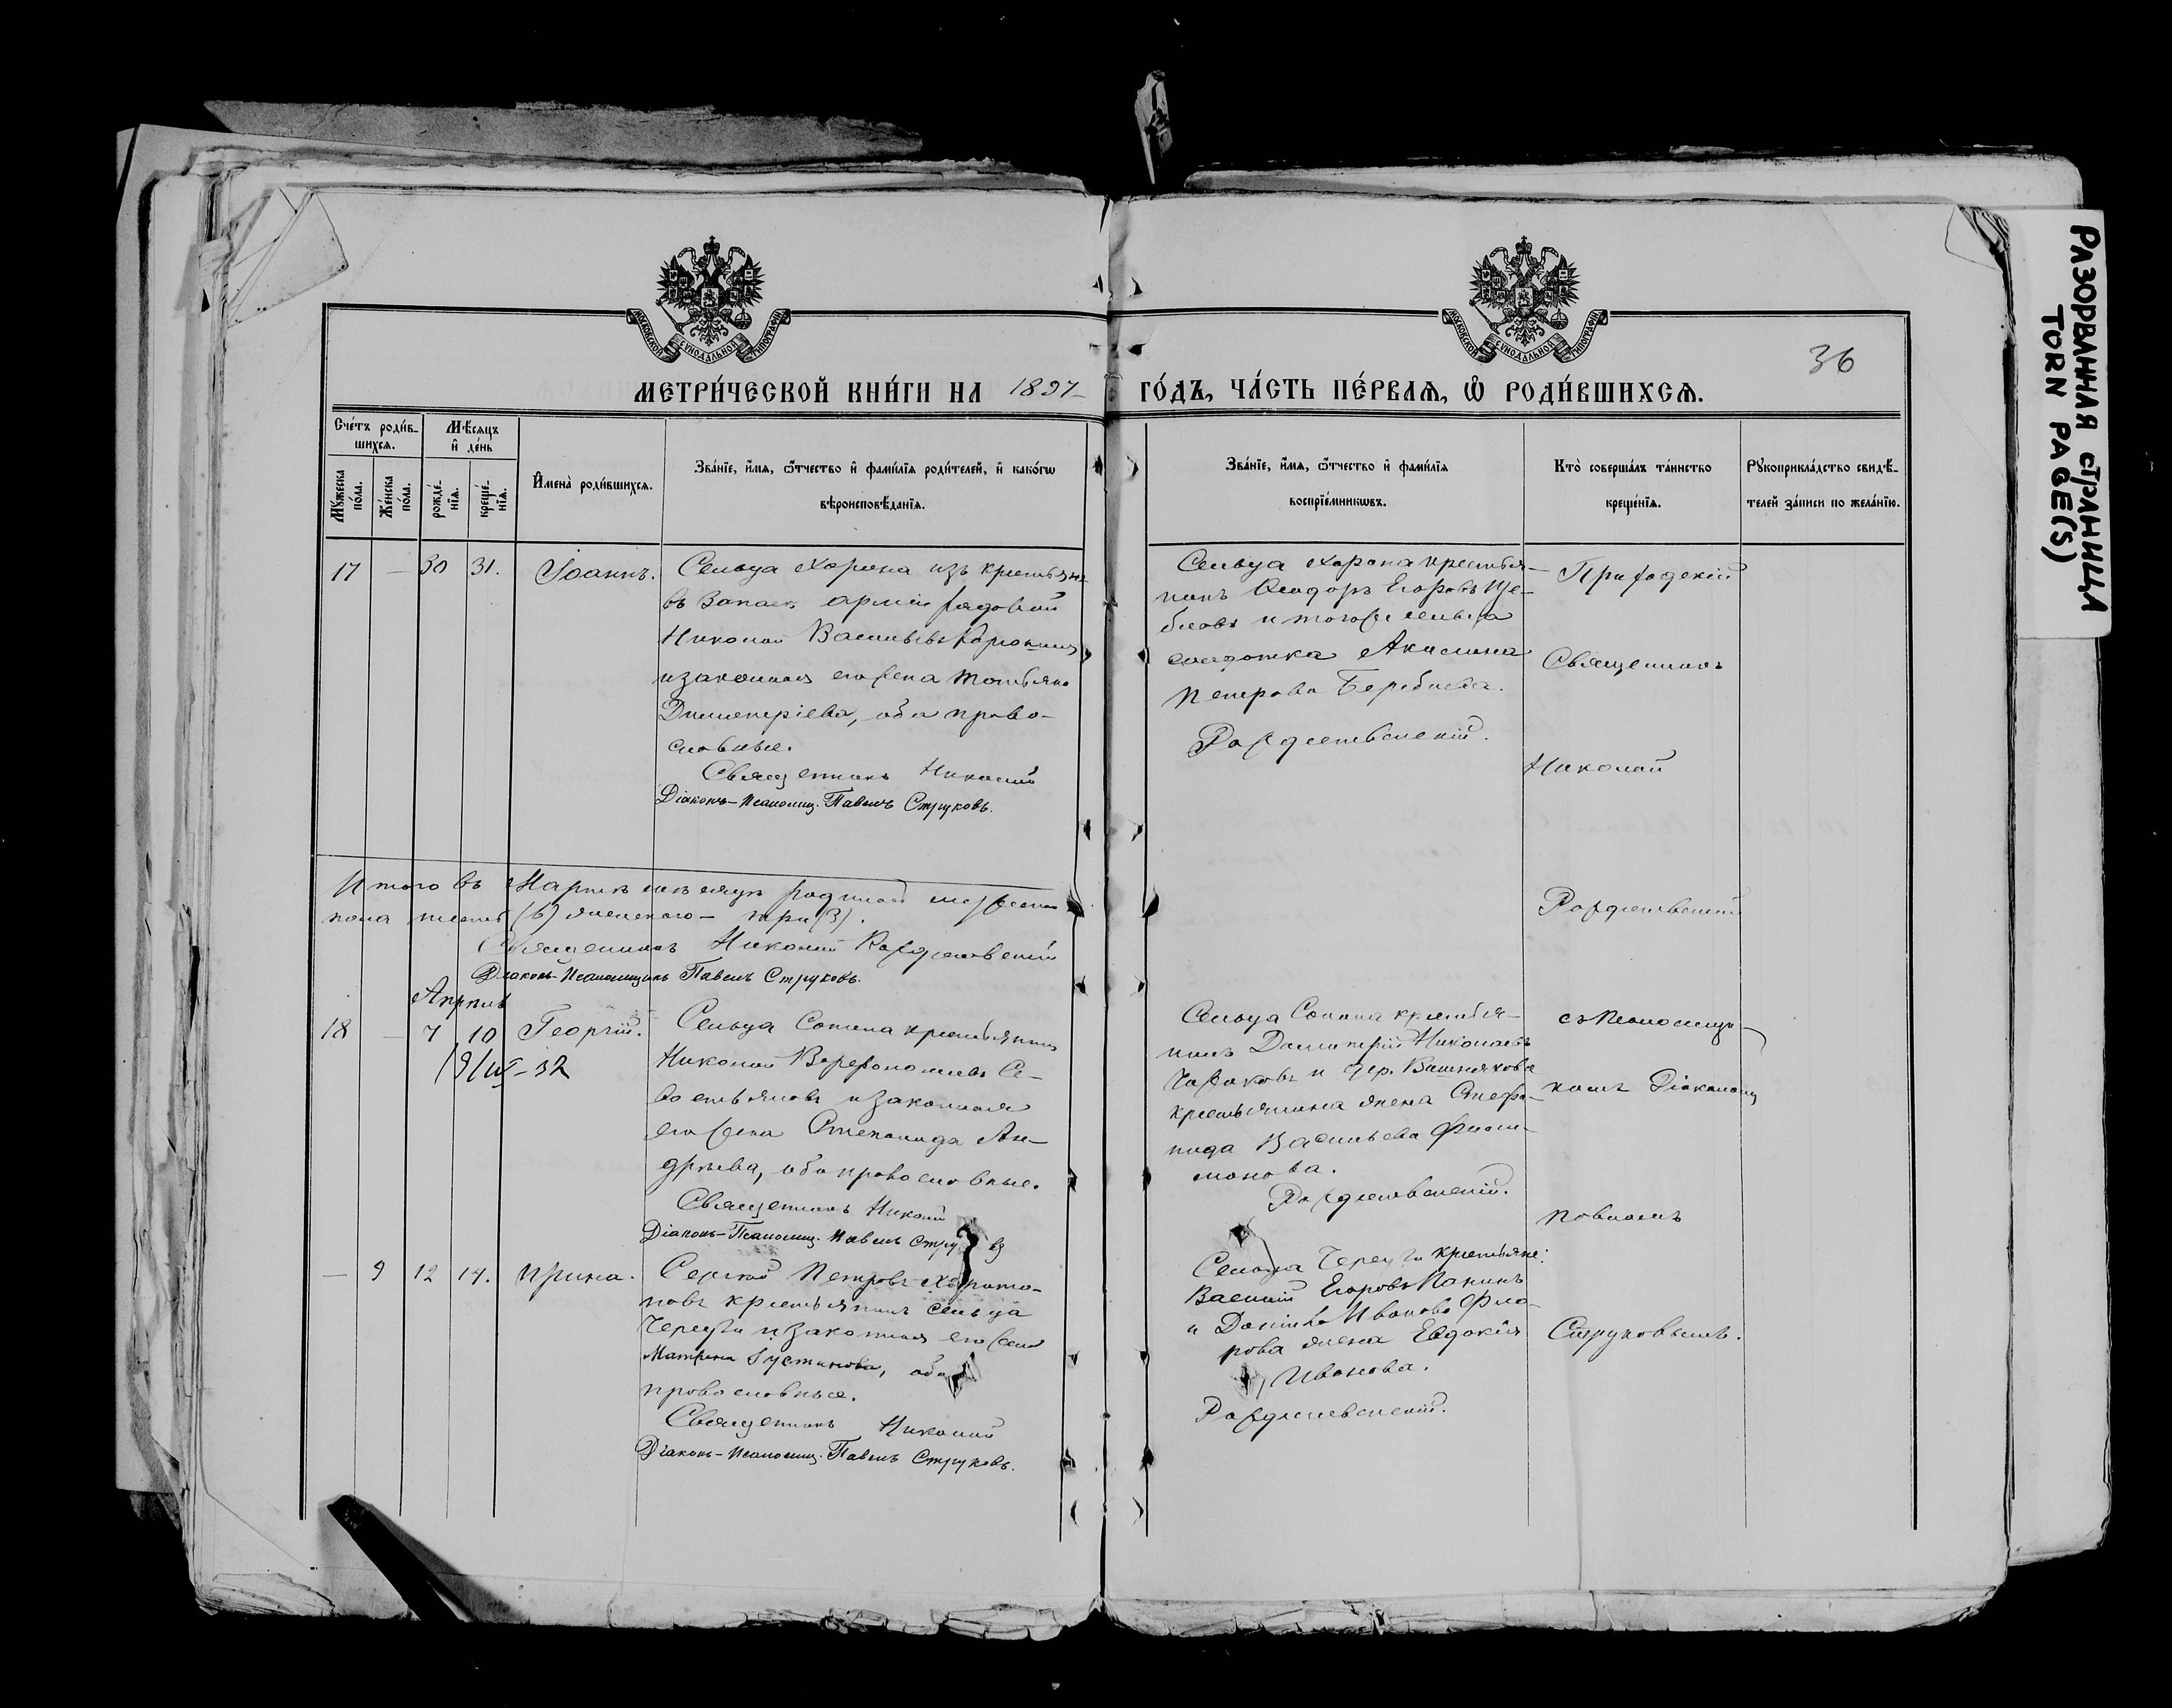 РАЗОРВАННАЯ СТРАНИЦА
TORN PAGE(S)
МОСКОВСКОЙ СУНОДАЛЬНОЙ ТИПОГРАФІИ
МОСКОВСКОЙ СУНОДАЛЬНОЙ ТИПОГРАФІИ
36
МЕТРИ́ЧЕСКОЙ КНИ́ГИ НА 1897 ГО́ДЪ, ЧА́СТЬ ПЕ́РВАѦ, Ѽ РОДИ́ВШИХСѦ.
Сче́тъ роди́в-
шихся.
Мѣ́сяцъ
и҆ де́нь
Мꙋ́жеска по́ла.
Же́нска по́ла.
рожде́-нїѧ.
креще́-нїѧ.
И҆мена̀ роди́вшихсѧ.
Зва́нїе, и҆́мѧ, ѻ҆́тчество и҆ фами́лїѧ роди́телей, и҆ како́гѡ
вѣроисповѣ́данїѧ.
Зва́нїе, и҆́мѧ, ѻ҆́тчество и҆ фами́лїѧ
воспрїе́мникѡвъ.
Кто̀ соверша́лъ та́инство
креще́нїѧ.
Рꙋкоприкла́дство свидѣ́-
телей за́писи по жела́нїю.
17 — 30 31. Іоаннъ.
Сельца Харина изъ крестьянъ
въ Запасѣ арміи рядовой
Николай Васильевъ
и законная его жена Татьяна
Димитріева, оба право-
славные.
Священникъ Николай
Діаконъ-Псаломщ. Павелъ Струковъ.
Сельца Харина крестья-
нинъ Ѳеодоръ Егоровъ Ще-
бловъ и того же сельца
солдатка Акилина
Петрова
Рождественскій.
Приходскій
Священникъ
Николай
Рождественскій
Итого въ Мартѣ мѣсяцѣ родилось мужеска
пола шесть (6) женскаго — три (3).
Священникъ Николай Рождественскій
Діаконъ-Псаломщикъ Павелъ Струковъ.
Апрѣль
18 — 7 10 Георгій.
Сельца Сонина крестьянинъ
Николай Варфоломеевъ Се-
востьяновъ и законная
его жена Степанида Ан-
дреева, оба православные.
Священникъ Николай
Діаконъ-Псаломщ. Павелъ Стру въ
Сельца Сонина крестья-
нинъ Димитрій Николаевъ
и дер. Вишнякова
крестьянина жена Стефа-
нида Васильева Фили-
монова.
Рождественскій.
съ Псаломщи-
комъ Діакономъ
Павломъ
Струковымъ.
— 9 12 14. Ирина.
Сергѣй Петровъ Харито-
новъ крестьянинъ сельца
и законная его жена
Матрена Іустинова, оба
православные.
Священникъ Николай
Діаконъ-Псаломщ. Павелъ Струковъ.
Сельца крестьяне:
Василій Егоровъ Панинъ
и Иванова Фло-
рова жена Евдокія
Иванова.
Рождественскій.